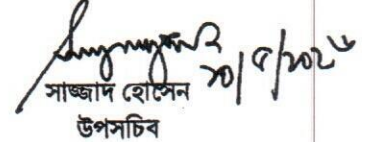 ২০/৫/২০২৬
সাজ্জাদ হোসেন
উপসচিব